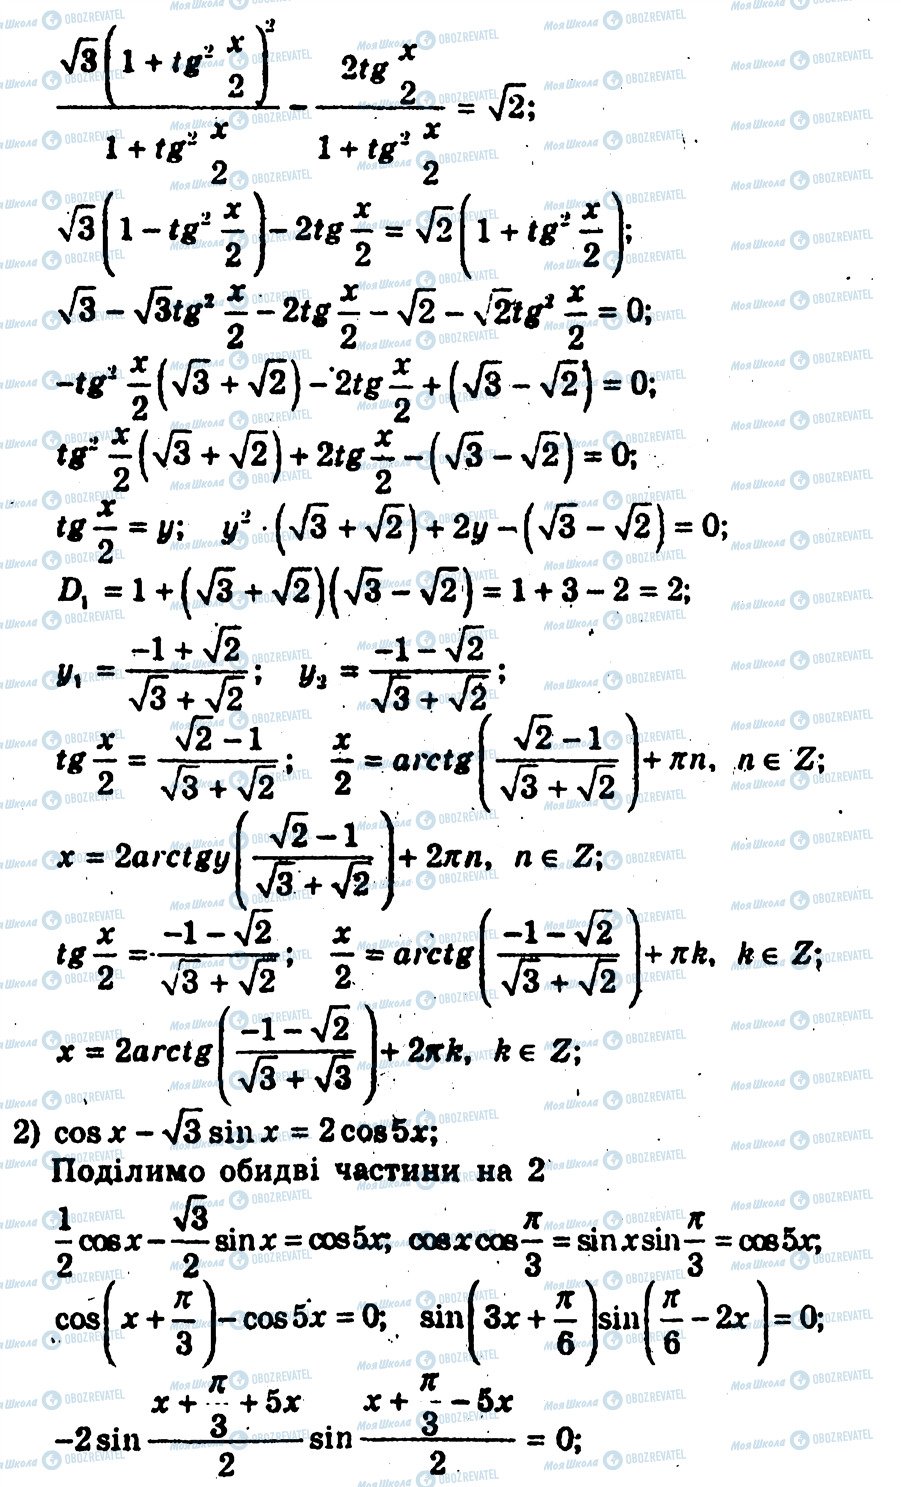 √3(1 + tg² x/2)² / (1 + tg² x/2) − 2tg x/2 / (1 + tg² x/2) = √2;
√3(1 − tg² x/2) − 2tg x/2 = √2(1 + tg² x/2);
√3 − √3tg² x/2 − 2tg x/2 − √2 − √2tg² x/2 = 0;
−tg² x/2 (√3 + √2) − 2tg x/2 + (√3 − √2) = 0;
tg² x/2 (√3 + √2) + 2tg x/2 − (√3 − √2) = 0;
tg x/2 = y; y² · (√3 + √2) + 2y − (√3 − √2) = 0;
D₁ = 1 + (√3 + √2)(√3 − √2) = 1 + 3 − 2 = 2;
y₁ = (−1 + √2)/(√3 + √2); y₂ = (−1 − √2)/(√3 + √2);
tg x/2 = (√2 − 1)/(√3 + √2); x/2 = arctg((√2 − 1)/(√3 + √2)) + πn, n ∈ Z;
x = 2arctgy((√2 − 1)/(√3 + √2)) + 2πn, n ∈ Z;
tg x/2 = (−1 − √2)/(√3 + √2); x/2 = arctg((−1 − √2)/(√3 + √2)) + πk, k ∈ Z;
x = 2arctg((−1 − √2)/(√3 + √3)) + 2πk, k ∈ Z;
2) cos x − √3 sin x = 2 cos 5x;
Поділимо обидві частини на 2
1/2 cos x − √3/2 sin x = cos 5x; cos x cos π/3 = sin x sin π/3 = cos 5x;
cos(x + π/3) − cos 5x = 0; sin(3x + π/6) sin(π/6 − 2x) = 0;
−2 sin (x + π/3 + 5x)/2 sin (x + π/3 − 5x)/2 = 0;
Моя Школа OBOZREVATEL